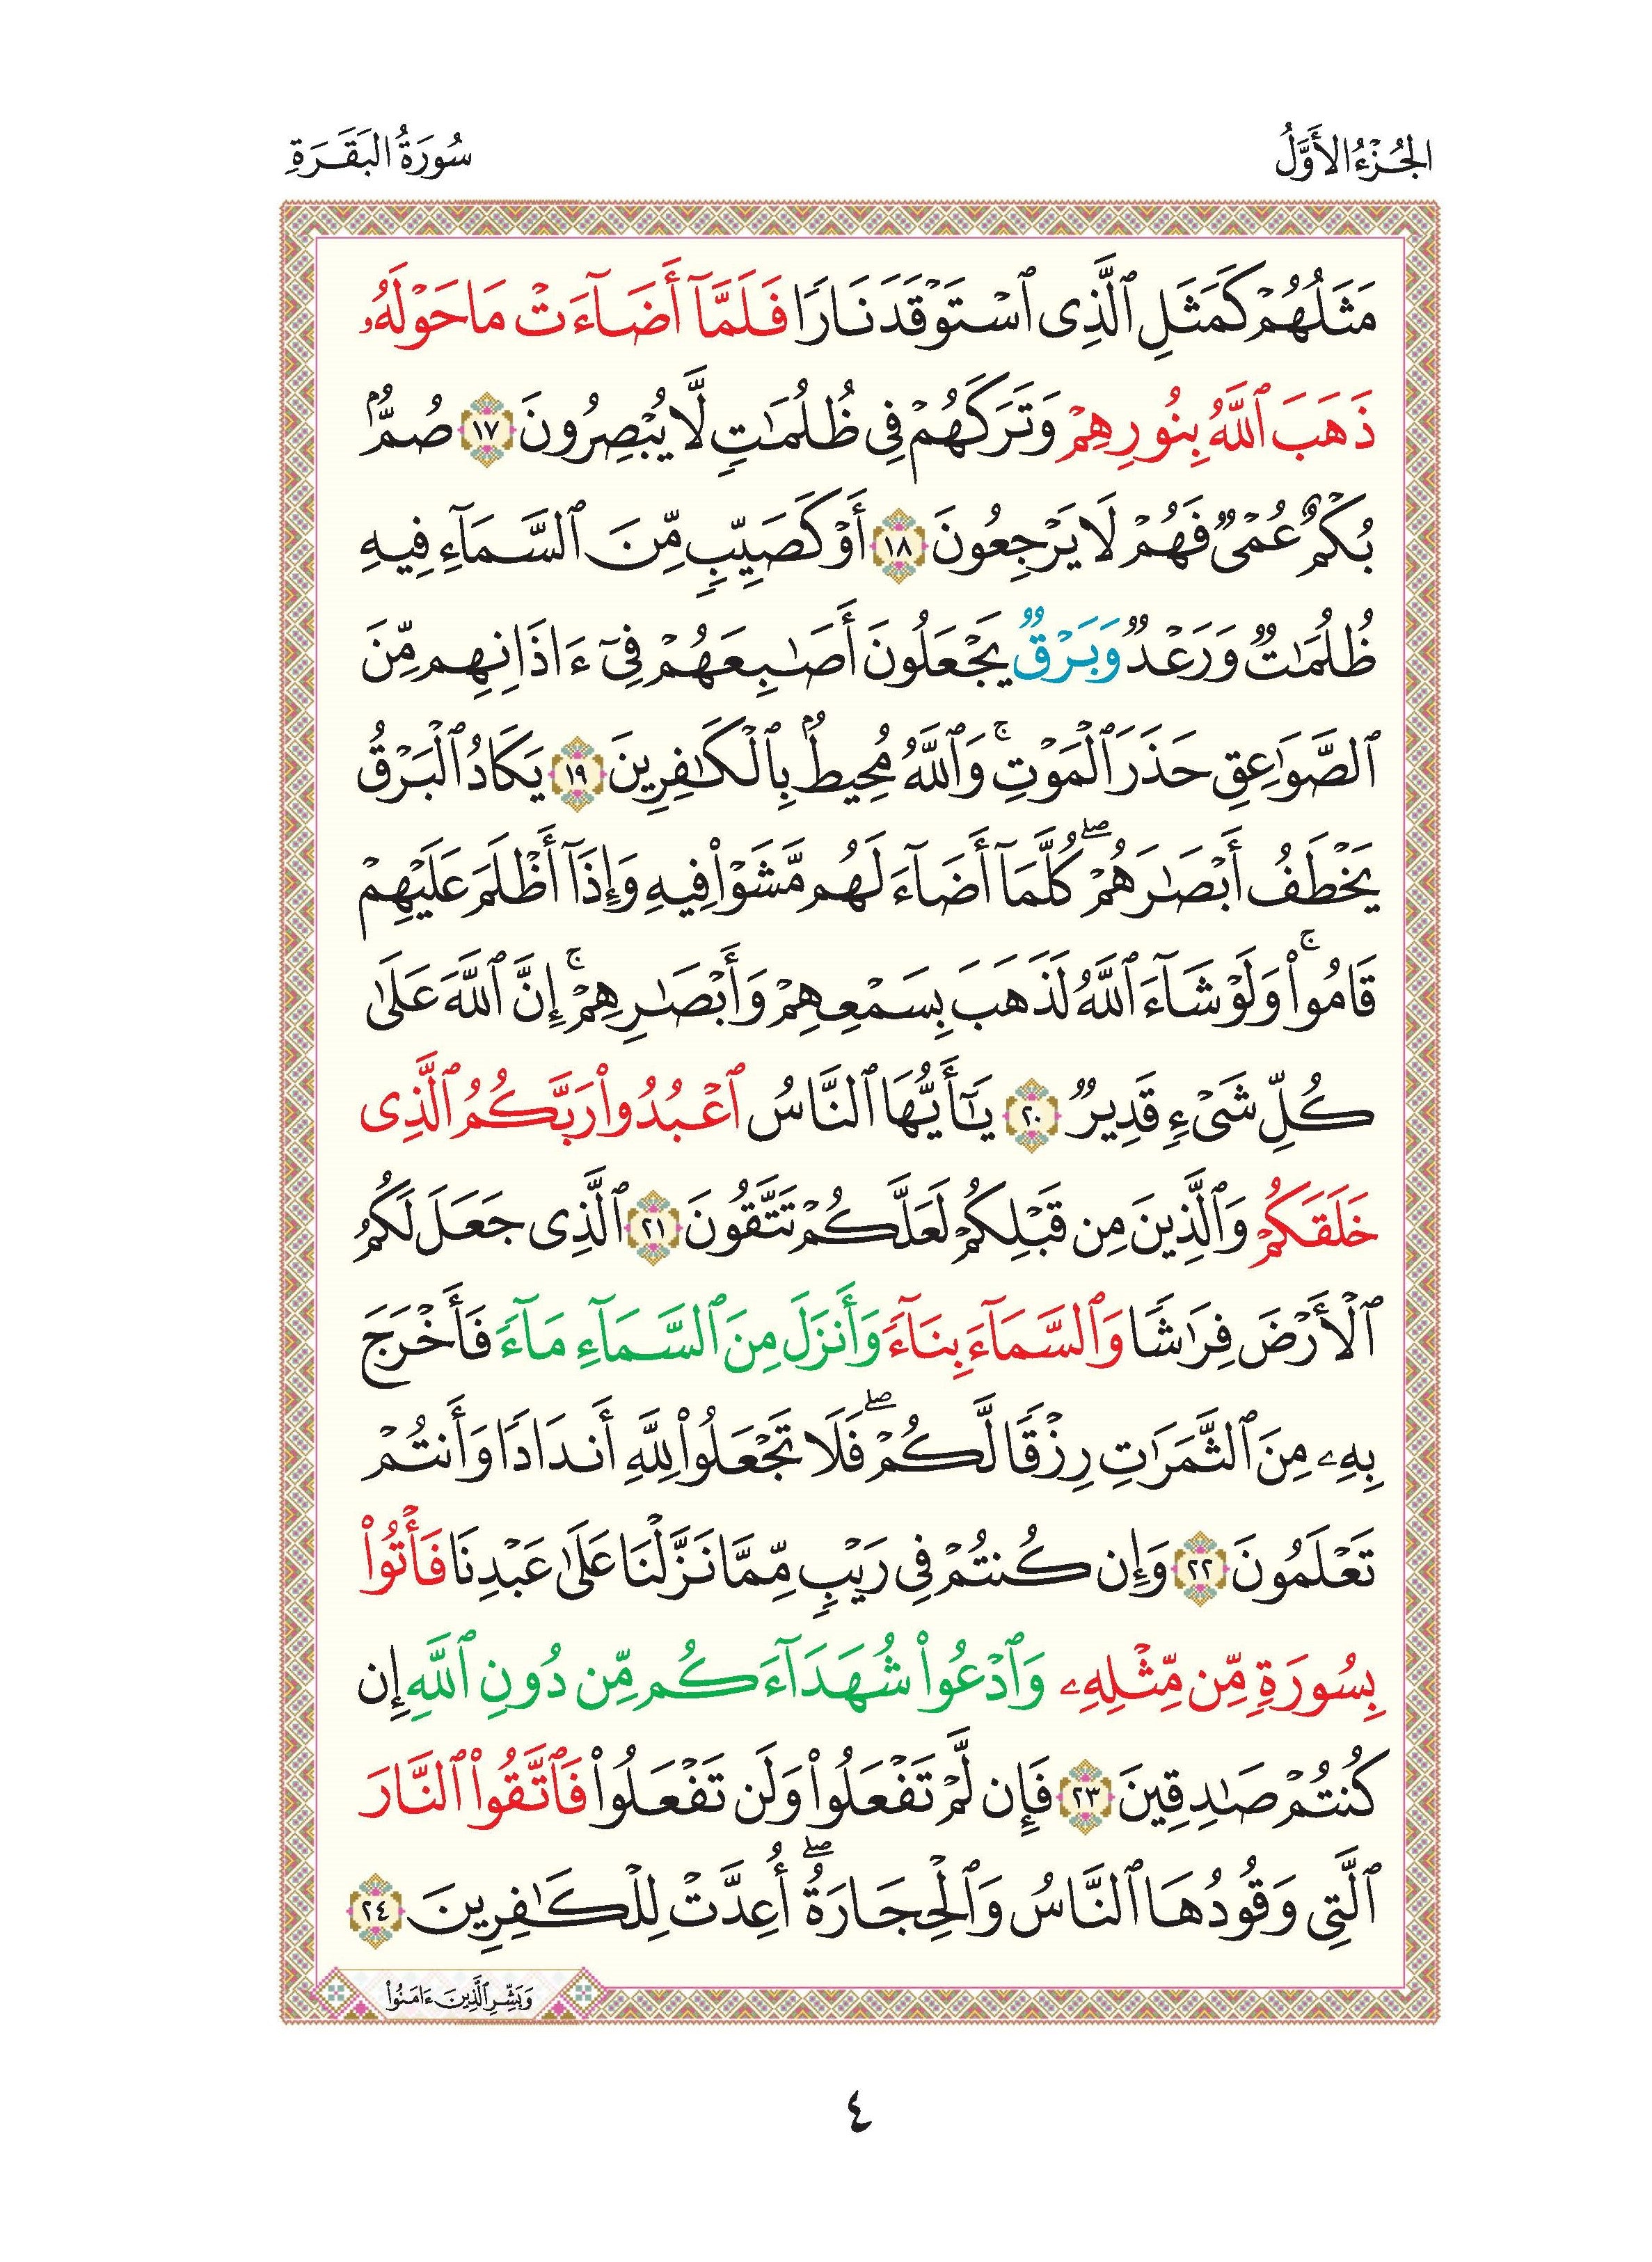 الجُزْءُ الأَوَّلُ
سُورَةُ البَقَرَةِ
مَثَلُهُمْ كَمَثَلِ ٱلَّذِى ٱسْتَوْقَدَ نَارًا فَلَمَّآ أَضَآءَتْ مَا حَوْلَهُۥ
ذَهَبَ ٱللَّهُ بِنُورِهِمْ وَتَرَكَهُمْ فِى ظُلُمَٰتٍ لَّا يُبْصِرُونَ ١٧ صُمٌّۢ
بُكْمٌ عُمْىٌ فَهُمْ لَا يَرْجِعُونَ ١٨ أَوْ كَصَيِّبٍ مِّنَ ٱلسَّمَآءِ فِيهِ
ظُلُمَٰتٌ وَرَعْدٌ وَبَرْقٌ يَجْعَلُونَ أَصَٰبِعَهُمْ فِىٓ ءَاذَانِهِم مِّنَ
ٱلصَّوَٰعِقِ حَذَرَ ٱلْمَوْتِ ۚ وَٱللَّهُ مُحِيطٌۢ بِٱلْكَٰفِرِينَ ١٩ يَكَادُ ٱلْبَرْقُ
يَخْطَفُ أَبْصَٰرَهُمْ ۖ كُلَّمَآ أَضَآءَ لَهُم مَّشَوْا۟ فِيهِ وَإِذَآ أَظْلَمَ عَلَيْهِمْ
قَامُوا۟ ۚ وَلَوْ شَآءَ ٱللَّهُ لَذَهَبَ بِسَمْعِهِمْ وَأَبْصَٰرِهِمْ ۚ إِنَّ ٱللَّهَ عَلَىٰ
كُلِّ شَىْءٍ قَدِيرٌ ٢٠ يَٰٓأَيُّهَا ٱلنَّاسُ ٱعْبُدُوا۟ رَبَّكُمُ ٱلَّذِى
خَلَقَكُمْ وَٱلَّذِينَ مِن قَبْلِكُمْ لَعَلَّكُمْ تَتَّقُونَ ٢١ ٱلَّذِى جَعَلَ لَكُمُ
ٱلْأَرْضَ فِرَٰشًا وَٱلسَّمَآءَ بِنَآءً وَأَنزَلَ مِنَ ٱلسَّمَآءِ مَآءً فَأَخْرَجَ
بِهِۦ مِنَ ٱلثَّمَرَٰتِ رِزْقًا لَّكُمْ ۖ فَلَا تَجْعَلُوا۟ لِلَّهِ أَندَادًا وَأَنتُمْ
تَعْلَمُونَ ٢٢ وَإِن كُنتُمْ فِى رَيْبٍ مِّمَّا نَزَّلْنَا عَلَىٰ عَبْدِنَا فَأْتُوا۟
بِسُورَةٍ مِّن مِّثْلِهِۦ وَٱدْعُوا۟ شُهَدَآءَكُم مِّن دُونِ ٱللَّهِ إِن
كُنتُمْ صَٰدِقِينَ ٢٣ فَإِن لَّمْ تَفْعَلُوا۟ وَلَن تَفْعَلُوا۟ فَٱتَّقُوا۟ ٱلنَّارَ
ٱلَّتِى وَقُودُهَا ٱلنَّاسُ وَٱلْحِجَارَةُ ۖ أُعِدَّتْ لِلْكَٰفِرِينَ ٢٤
وَبَشِّرِ ٱلَّذِينَ ءَامَنُوا۟
٤